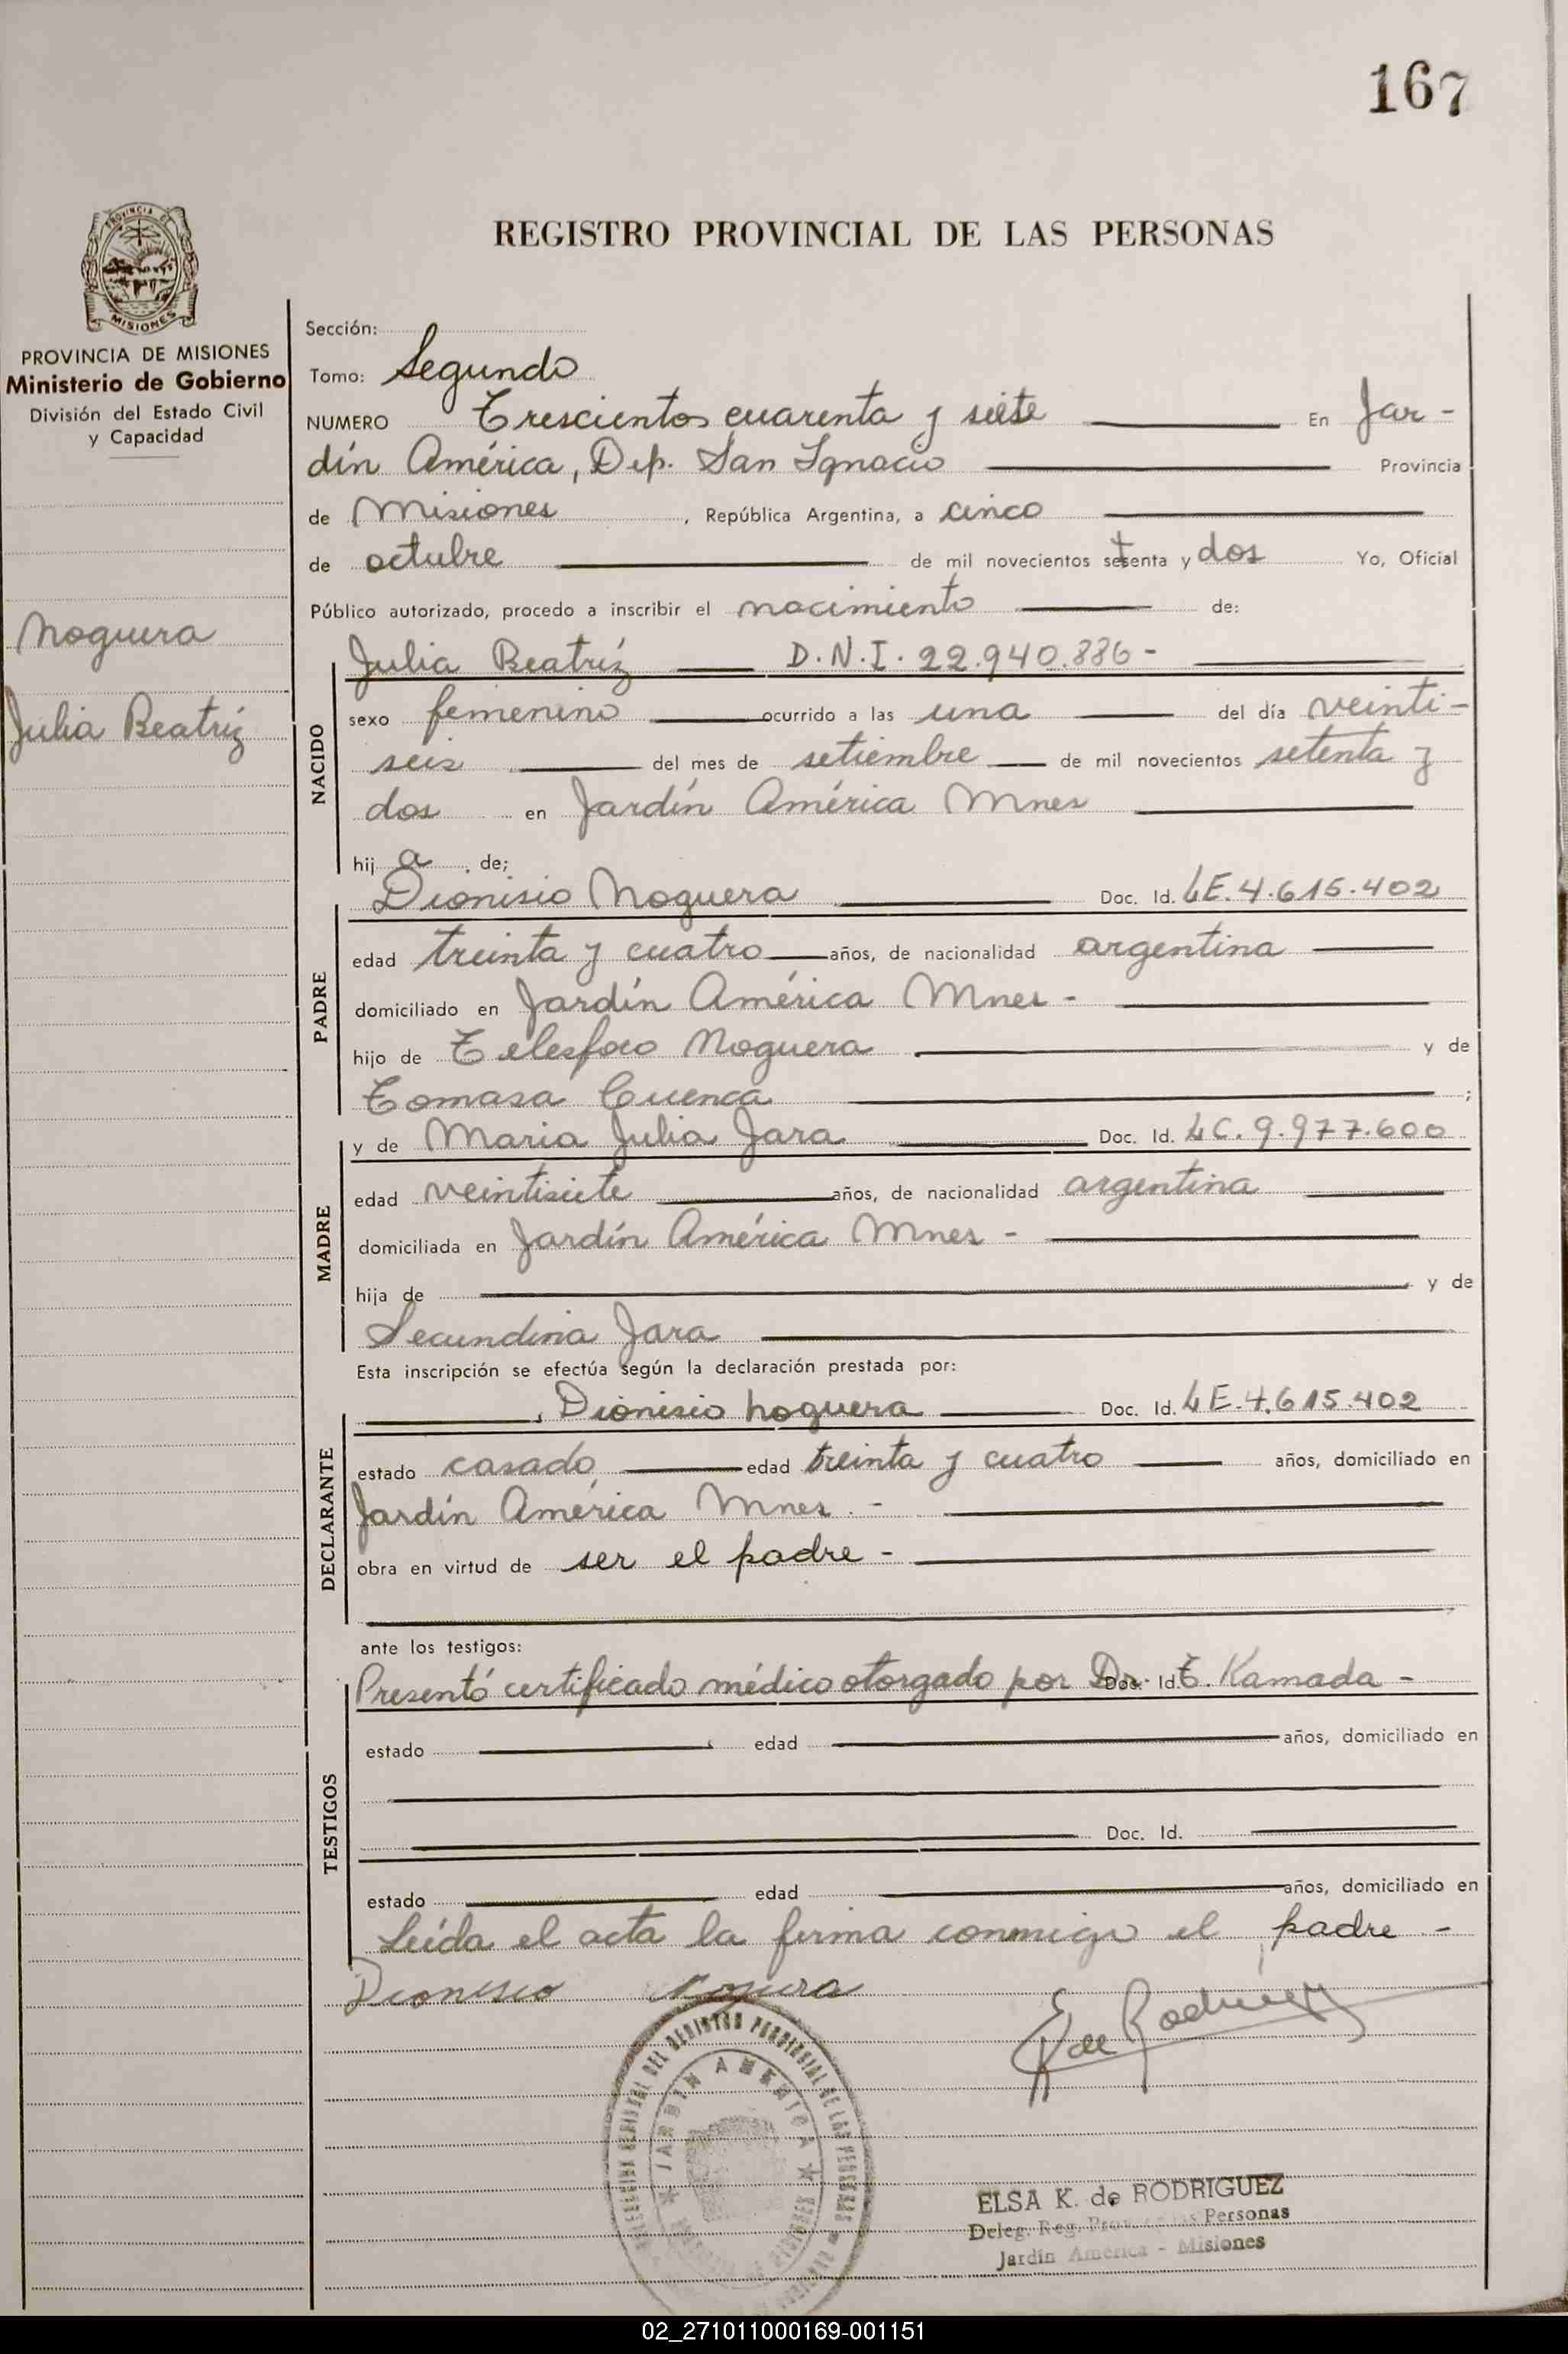 167
REGISTRO PROVINCIAL DE LAS PERSONAS
PROVINCIA DE MISIONES
PROVINCIA DE MISIONES
Ministerio de Gobierno
División del Estado Civil
y Capacidad
Noguera
Julia Beatríz
Sección:
Tomo: Segundo
NUMERO Trescientos cuarenta y siete En Jar-
dín América, Dep. San Ignacio Provincia
de Misiones, República Argentina, a cinco
de octubre de mil novecientos setenta y dos Yo, Oficial
Público autorizado, procedo a inscribir el nacimiento de:
Julia Beatríz D.N.I. 22.940.886-
NACIDO
sexo femenino ocurrido a las una del día veinti-
seis del mes de setiembre de mil novecientos setenta y
dos en Jardín América Mnes
hij a de;
Dionisio Noguera Doc. Id. LE. 4.615.402
PADRE
edad treinta y cuatro años, de nacionalidad argentina
domiciliado en Jardín América Mnes -
hijo de Telesforo Noguera y de
Tomasa Cuenca ;
y de Maria Julia Jara Doc. Id. LC. 9.977.600
MADRE
edad veintisiete años, de nacionalidad argentina
domiciliada en Jardín América Mnes -
hija de y de
Secundina Jara
Esta inscripción se efectúa según la declaración prestada por:
Dionisio Noguera Doc. Id. LE. 4.615.402
DECLARANTE
estado casado edad treinta y cuatro años, domiciliado en
Jardín América Mnes. -
obra en virtud de ser el padre -
ante los testigos:
Presentó certificado médico otorgado por Dr. Doc. Id. T. Kamada -
TESTIGOS
estado edad años, domiciliado en
Doc. Id.
estado edad años, domiciliado en
Leída el acta la firma conmigo el padre -
Dionisio
E K de Rodriguez
JARDIN AMERICA
ELSA K. de RODRIGUEZ
Deleg. Reg. Prov. de las Personas
Jardín América - Misiones
02_271011000169-001151